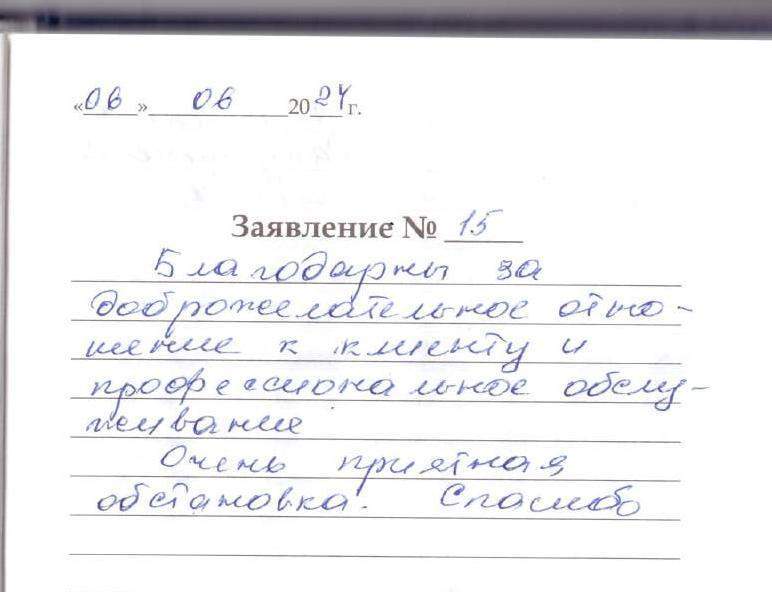 «06» 06 2024 г.
Заявление № 15
Благодарны за
доброжелательное отно-
шение к клиенту и
профессиональное обслу-
живание
Очень приятная
обстановка. Спасибо